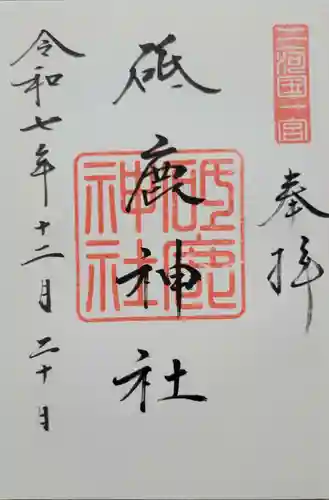 三河国一宮
奉拝
砥鹿神社
砥鹿神社
令和七年十二月二十日